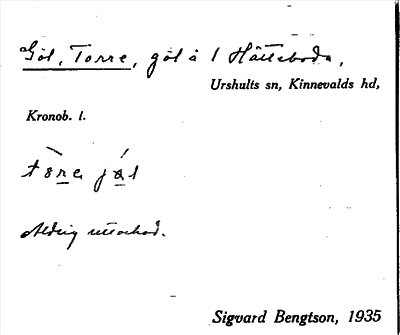 Göl, Torre, göl å 1 Hätteboda,
Urshults sn, Kinnevalds hd,
Kronob. l.
törẹ jöl
Aldrig uttorkad.
Sigvard Bengtson, 1935